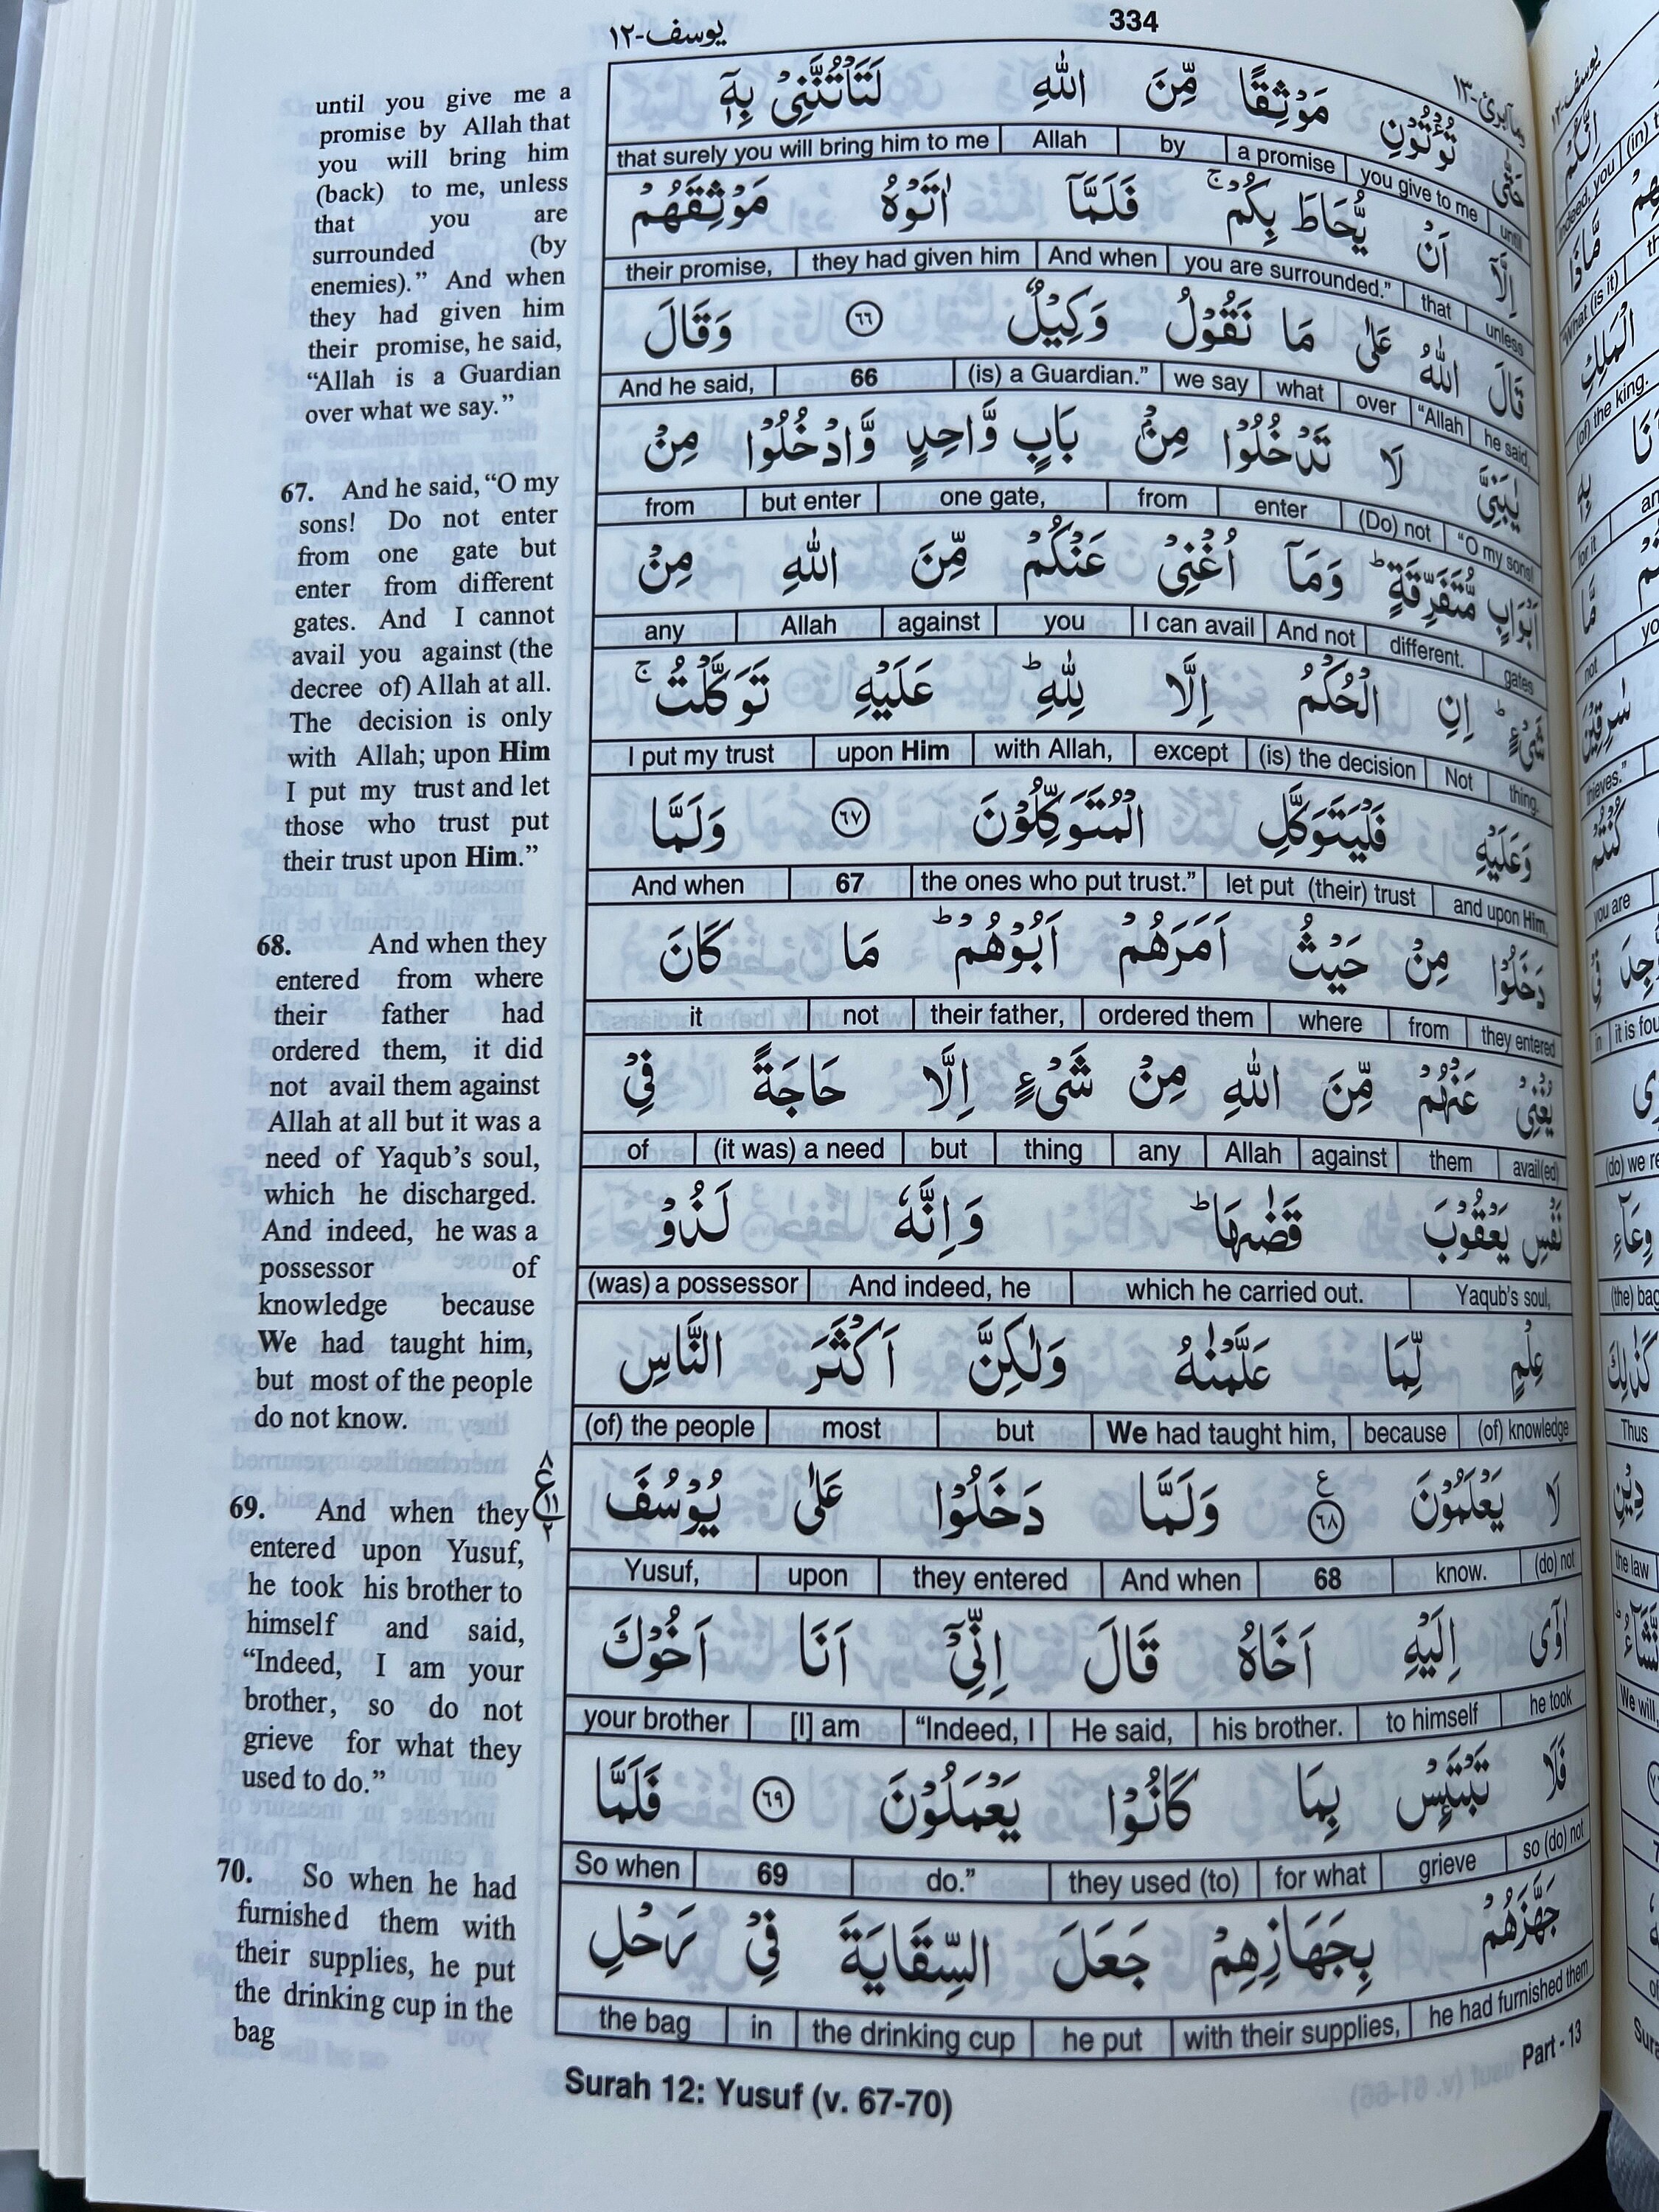 يوسف-١٢
334
وما ابرئ-١٣
until you give me a
promise by Allah that
you will bring him
(back) to me, unless
that you are
surrounded (by
enemies).” And when
they had given him
their promise, he said,
“Allah is a Guardian
over what we say.”
67. And he said, “O my
sons! Do not enter
from one gate but
enter from different
gates. And I cannot
avail you against (the
decree of) Allah at all.
The decision is only
with Allah; upon Him
I put my trust and let
those who trust put
their trust upon Him.”
68. And when they
entered from where
their father had
ordered them, it did
not avail them against
Allah at all but it was a
need of Yaqub’s soul,
which he discharged.
And indeed, he was a
possessor of
knowledge because
We had taught him,
but most of the people
do not know.
69. And when they
entered upon Yusuf,
he took his brother to
himself and said,
“Indeed, I am your
brother, so do not
grieve for what they
used to do.”
70. So when he had
furnished them with
their supplies, he put
the drinking cup in the
bag
حَتّٰى تُؤْتُوْنِ مَوْثِقًا مِّنَ اللّٰهِ لَتَاْتُنَّنِىْ بِهٖۤ
that surely you will bring him to me Allah by a promise you give to me until
اِلَّاۤ اَنْ يُّحَاطَ بِكُمْ ۚ فَلَمَّاۤ اٰتَوْهُ مَوْثِقَهُمْ
their promise, they had given him And when you are surrounded.” that unless
قَالَ اللّٰهُ عَلٰى مَا نَقُوْلُ وَكِيْلٌ ٦٦ وَقَالَ
And he said, 66 (is) a Guardian.” we say what over “Allah he said,
يٰبَنِىَّ لَا تَدْخُلُوْا مِنْۢ بَابٍ وَّاحِدٍ وَّادْخُلُوْا مِنْ
from but enter one gate, from enter (Do) not “O my sons!
اَبْوَابٍ مُّتَفَرِّقَةٍ ؕ وَمَاۤ اُغْنِىْ عَنْكُمْ مِّنَ اللّٰهِ مِنْ
any Allah against you I can avail And not different. gates
شَىْءٍ ؕ اِنِ الْحُكْمُ اِلَّا لِلّٰهِ ؕ عَلَيْهِ تَوَكَّلْتُ ۚ
I put my trust upon Him with Allah, except (is) the decision Not thing.
وَعَلَيْهِ فَلْيَتَوَكَّلِ الْمُتَوَكِّلُوْنَ ٦٧ وَلَمَّا
And when 67 the ones who put trust.” let put (their) trust and upon Him,
دَخَلُوْا مِنْ حَيْثُ اَمَرَهُمْ اَبُوْهُمْ ؕ مَا كَانَ
it not their father, ordered them where from they entered
يُغْنِىْ عَنْهُمْ مِّنَ اللّٰهِ مِنْ شَىْءٍ اِلَّا حَاجَةً فِىْ
of (it was) a need but thing any Allah against them avail(ed)
نَفْسِ يَعْقُوْبَ قَضٰٮهَا ؕ وَاِنَّهٗ لَذُوْ
(was) a possessor And indeed, he which he carried out. Yaqub’s soul,
عِلْمٍ لِّمَا عَلَّمْنٰهُ وَلٰكِنَّ اَكْثَرَ النَّاسِ
(of) the people most but We had taught him, because (of) knowledge
لَا يَعْلَمُوْنَ ٦٨ ع وَلَمَّا دَخَلُوْا عَلٰى يُوْسُفَ
٨ ع ١١ ٢
Yusuf, upon they entered And when 68 know. (do) not
اٰوٰٓى اِلَيْهِ اَخَاهُ قَالَ اِنِّىْۤ اَنَا اَخُوْكَ
your brother [I] am “Indeed, I He said, his brother. to himself he took
فَلَا تَبْتَٮِٕسْ بِمَا كَانُوْا يَعْمَلُوْنَ ٦٩ فَلَمَّا
So when 69 do.” they used (to) for what grieve so (do) not
جَهَّزَهُمْ بِجَهَازِهِمْ جَعَلَ السِّقَايَةَ فِىْ رَحْلِ
the bag in the drinking cup he put with their supplies, he had furnished them
Surah 12: Yusuf (v. 67-70)
Part - 13
يوسف-١٢
اِنَّكُمْ
Indeed, you
مَّاذَا
“What (is it)
الْمَلِكِ
(of) the king.
بِهٖ
for it
not
سٰرِقِيْنَ
thieves.”
كُنْتُمْ
you are
فِىْ
in it is
(do) we
وِعَآءِ
(the) bag
كَذٰلِكَ
Thus
دِيْنِ
the law
نَّشَآءُ
We will,